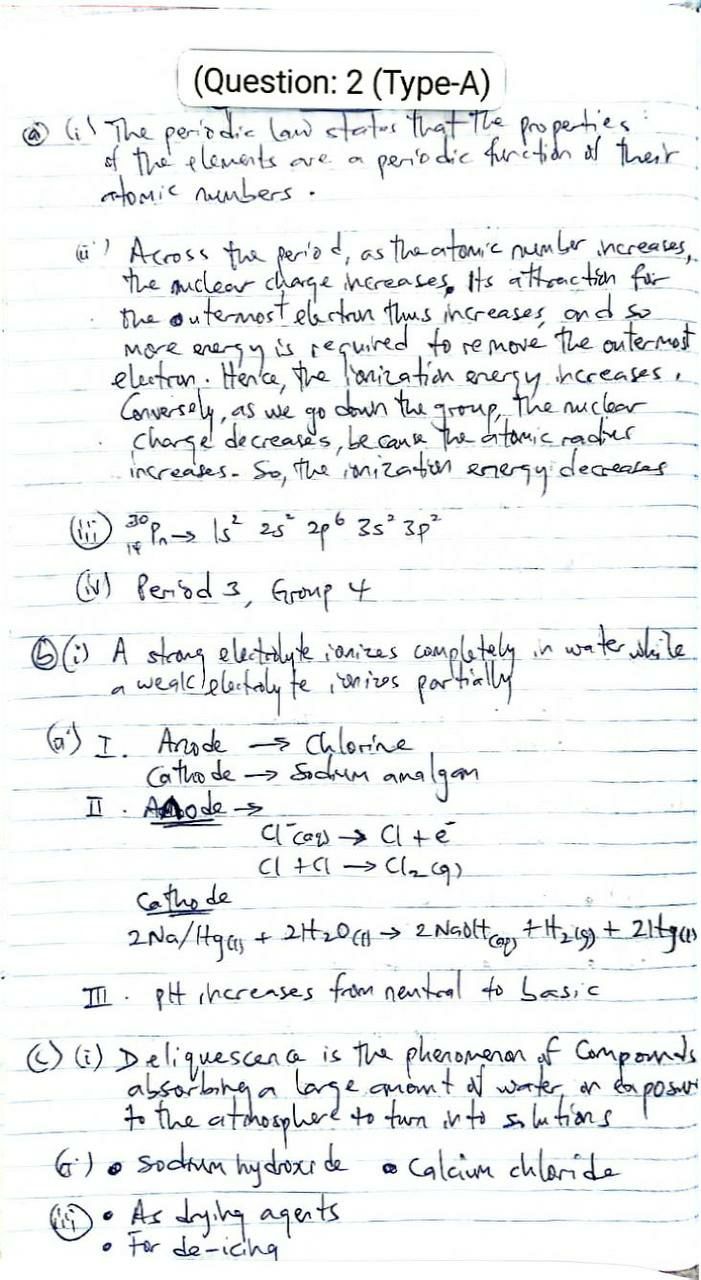 (Question: 2 (Type-A)
(a) (i) The periodic law states that the properties
of the elements are a periodic function of their
atomic numbers.
(ii) Across the period, as the atomic number increases,
the nuclear charge increases. Its attraction for
the outermost electron thus increases, and so
more energy is required to remove the outermost
electron. Hence, the ionization energy increases.
Conversely, as we go down the group, the nuclear
charge decreases, because the atomic radius
increases. So, the ionization energy decreases
(iii) ³⁰₁₄Pn → 1s² 2s² 2p⁶ 3s² 3p²
(iv) Period 3, Group 4
(b) (i) A strong electrolyte ionizes completely in water while
a weak electrolyte ionizes partially
(ii) I. Anode → Chlorine
Cathode → Sodium amalgam
II. Anode →
Cl⁻(aq) → Cl + e⁻
Cl + Cl → Cl₂(g)
Cathode
2Na/Hg(l) + 2H₂O(l) → 2NaOH(aq) + H₂(g) + 2Hg(l)
III. pH increases from neutral to basic
(c) (i) Deliquescence is the phenomenon of Compounds
absorbing a large amount of water on exposure
to the atmosphere to turn into solutions
(ii) • Sodium hydroxide • Calcium chloride
(iii) • As drying agents
• For de-icing